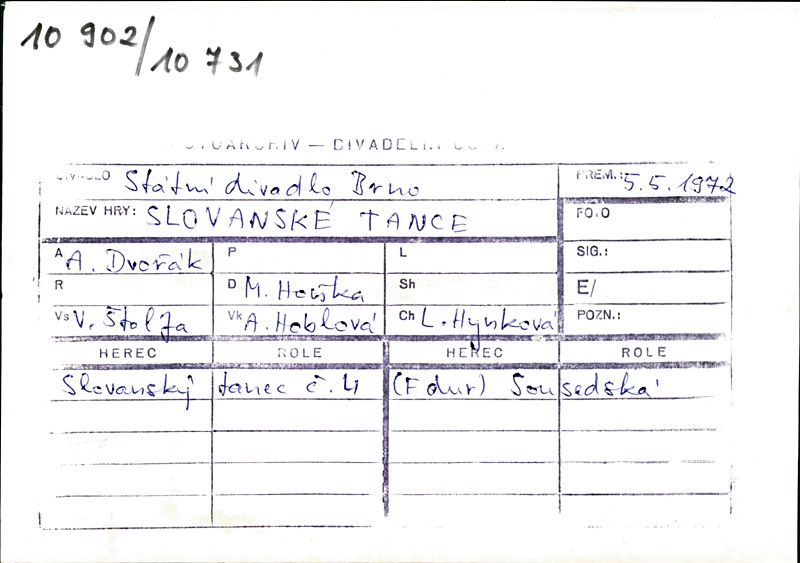 10 902/10 731
FOTOARCHIV — DIVADELNÍ
DIVADLO Státní divadlo Brno PREM.: 5.5.1972
NÁZEV HRY: SLOVANSKÉ TANCE FOTO
A A. Dvořák P L SIG.:
R D M. Houska Sh E/
Vs V. Štolfa Vk A. Hoblová Ch L. Hynková POZN.:
HEREC ROLE HEREC ROLE
Slovanský tanec č. 4 (F dur) Sousedská